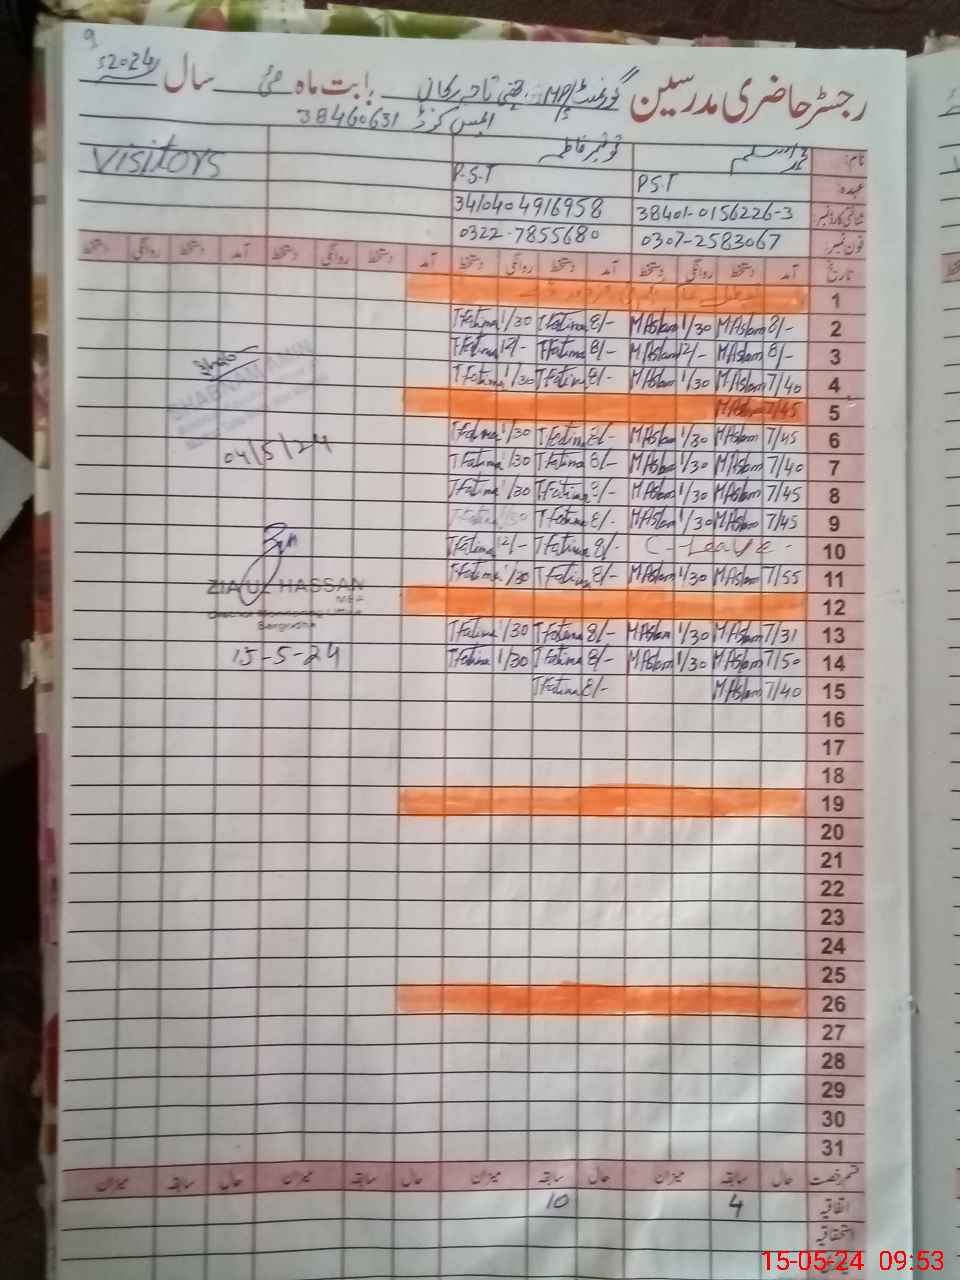 9
رجسٹر حاضری مدرسین گورنمنٹ MP/S بابت ماہ مئی سال 2024ء
ایمس کوڈ 38460631
نام: محمد اسلم
Visitors
عہدہ: PST P.S.T
شناختی کارڈ نمبر: 38401-0156226-3 3410404916958
فون نمبر: 0307-2583067 0322-7855680
تاریخ آمد دستخط روانگی دستخط آمد دستخط روانگی دستخط آمد دستخط روانگی دستخط آمد دستخط روانگی دستخط
1
2 8/- M Aslam 1/30 M Aslam 8/- T Fatima 1/30 T Fatima
3 8/- M Aslam 12/- M Aslam 8/- T Fatima 12/- T Fatima
4 7/40 M Aslam 1/30 M Aslam 8/- T Fatima 1/30 T Fatima
5 7/45 M Aslam
6 7/45 M Aslam 1/30 M Aslam 8/- T Fatima 1/30 T Fatima
7 7/40 M Aslam 1/30 M Aslam 8/- T Fatima 1/30 T Fatima
8 7/45 M Aslam 1/30 M Aslam 8/- T Fatima 1/30 T Fatima
9 7/45 M Aslam 1/30 M Aslam 8/- T Fatima 1/30 T Fatima
10 C-Leave 8/- T Fatima 12/- T Fatima
11 7/55 M Aslam 1/30 M Aslam 8/- T Fatima 1/30 T Fatima
12
13 7/31 M Aslam 1/30 M Aslam 8/- T Fatima 1/30 T Fatima
14 7/50 M Aslam 1/30 M Aslam 8/- T Fatima 1/30 T Fatima
15 7/40 M Aslam 8/- T Fatima
16
17
18
19
20
21
22
23
24
25
26
27
28
29
30
31
SHABNAM AMIN
04/5/24
ZIA UL HASSAN
MEA
Sargodha
15-5-24
قسم رخصت حال سابقہ میزان حال سابقہ میزان حال سابقہ میزان حال سابقہ میزان
اتفاقیہ 4 10
استحقاقیہ
15-05-24 09:53